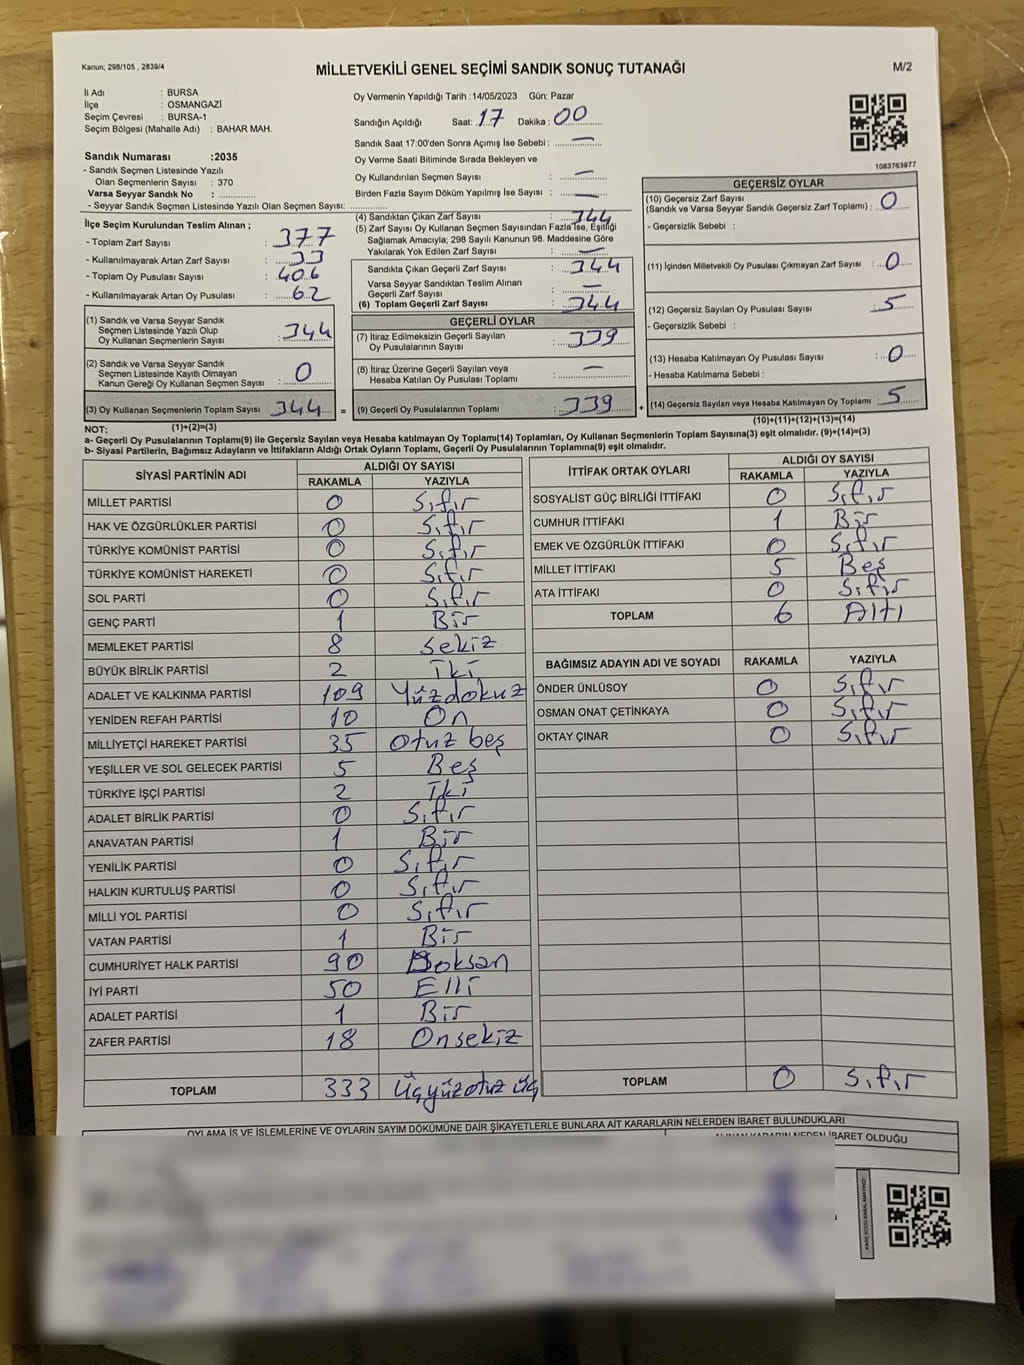 Kanun; 298/105 , 2839/4
MİLLETVEKİLİ GENEL SEÇİMİ SANDIK SONUÇ TUTANAĞI
M/2
İl Adı : BURSA
İlçe : OSMANGAZİ
Seçim Çevresi : BURSA-1
Seçim Bölgesi (Mahalle Adı) : BAHAR MAH.
Sandık Numarası :2035
- Sandık Seçmen Listesinde Yazılı
Olan Seçmenlerin Sayısı : 370
Varsa Seyyar Sandık No :
- Seyyar Sandık Seçmen Listesinde Yazılı Olan Seçmen Sayısı:
Oy Vermenin Yapıldığı Tarih :14/05/2023 Gün: Pazar
Sandığın Açıldığı Saat: 17 Dakika : 00
Sandık Saat 17:00'den Sonra Açımış İse Sebebi : —
Oy Verme Saati Bitiminde Sırada Bekleyen ve
Oy Kullandırılan Seçmen Sayısı : —
Birden Fazla Sayım Döküm Yapılmış İse Sayısı : —
1083763977
İlçe Seçim Kurulundan Teslim Alınan ;
- Toplam Zarf Sayısı : 377
- Kullanılmayarak Artan Zarf Sayısı : 33
- Toplam Oy Pusulası Sayısı : 406
- Kullanılmayarak Artan Oy Pusulası : 62
(1) Sandık ve Varsa Seyyar Sandık
Seçmen Listesinde Yazılı Olup
Oy Kullanan Seçmenlerin Sayısı : 344
(2) Sandık ve Varsa Seyyar Sandık
Seçmen Listesinde Kayıtlı Olmayan
Kanun Gereği Oy Kullanan Seçmen Sayısı : 0
(3) Oy Kullanan Seçmenlerin Toplam Sayısı : 344 =
(1)+(2)=(3)
(4) Sandıktan Çıkan Zarf Sayısı : 344
(5) Zarf Sayısı Oy Kullanan Seçmen Sayısından Fazla İse, Eşitliği
Sağlamak Amacıyla; 298 Sayılı Kanunun 98. Maddesine Göre
Yakılarak Yok Edilen Zarf Sayısı : —
Sandıkta Çıkan Geçerli Zarf Sayısı : 344
Varsa Seyyar Sandıktan Teslim Alınan
Geçerli Zarf Sayısı : —
(6) Toplam Geçerli Zarf Sayısı : 344
GEÇERLİ OYLAR
(7) İtiraz Edilmeksizin Geçerli Sayılan
Oy Pusulalarının Sayısı : 339
(8) İtiraz Üzerine Geçerli Sayılan veya
Hesaba Katılan Oy Pusulası Toplamı : —
(9) Geçerli Oy Pusulalarının Toplamı : 339 +
GEÇERSİZ OYLAR
(10) Geçersiz Zarf Sayısı
(Sandık ve Varsa Seyyar Sandık Geçersiz Zarf Toplamı) : 0
- Geçersizlik Sebebi :
(11) İçinden Milletvekili Oy Pusulası Çıkmayan Zarf Sayısı : 0
(12) Geçersiz Sayılan Oy Pusulası Sayısı : 5
- Geçersizlik Sebebi :
(13) Hesaba Katılmayan Oy Pusulası Sayısı : 0
- Hesaba Katılmama Sebebi :
(14) Geçersiz Sayılan veya Hesaba Katılmayan Oy Toplamı : 5
(10)+(11)+(12)+(13)=(14)
NOT:
a- Geçerli Oy Pusulalarının Toplamı(9) ile Geçersiz Sayılan veya Hesaba katılmayan Oy Toplamı(14) Toplamları, Oy Kullanan Seçmenlerin Toplam Sayısına(3) eşit olmalıdır. (9)+(14)=(3)
b- Siyasi Partilerin, Bağımsız Adayların ve İttifakların Aldığı Ortak Oyların Toplamı, Geçerli Oy Pusulalarının Toplamına(9) eşit olmalıdır.
SİYASİ PARTİNİN ADI ALDIĞI OY SAYISI
RAKAMLA YAZIYLA
MİLLET PARTİSİ 0 Sıfır
HAK VE ÖZGÜRLÜKLER PARTİSİ 0 Sıfır
TÜRKİYE KOMÜNİST PARTİSİ 0 Sıfır
TÜRKİYE KOMÜNİST HAREKETİ 0 Sıfır
SOL PARTİ 0 Sıfır
GENÇ PARTİ 1 Bir
MEMLEKET PARTİSİ 8 Sekiz
BÜYÜK BİRLİK PARTİSİ 2 İki
ADALET VE KALKINMA PARTİSİ 109 Yüzdokuz
YENİDEN REFAH PARTİSİ 10 On
MİLLİYETÇİ HAREKET PARTİSİ 35 Otuz beş
YEŞİLLER VE SOL GELECEK PARTİSİ 5 Beş
TÜRKİYE İŞÇİ PARTİSİ 2 İki
ADALET BİRLİK PARTİSİ 0 Sıfır
ANAVATAN PARTİSİ 1 Bir
YENİLİK PARTİSİ 0 Sıfır
HALKIN KURTULUŞ PARTİSİ 0 Sıfır
MİLLİ YOL PARTİSİ 0 Sıfır
VATAN PARTİSİ 1 Bir
CUMHURİYET HALK PARTİSİ 90 Doksan
İYİ PARTİ 50 Elli
ADALET PARTİSİ 1 Bir
ZAFER PARTİSİ 18 Onsekiz
TOPLAM 333 Üçyüzotuz üç
İTTİFAK ORTAK OYLARI ALDIĞI OY SAYISI
RAKAMLA YAZIYLA
SOSYALİST GÜÇ BİRLİĞİ İTTİFAKI 0 Sıfır
CUMHUR İTTİFAKI 1 Bir
EMEK VE ÖZGÜRLÜK İTTİFAKI 0 Sıfır
MİLLET İTTİFAKI 5 Beş
ATA İTTİFAKI 0 Sıfır
TOPLAM 6 Altı
BAĞIMSIZ ADAYIN ADI VE SOYADI RAKAMLA YAZIYLA
ÖNDER ÜNLÜSOY 0 Sıfır
OSMAN ONAT ÇETİNKAYA 0 Sıfır
OKTAY ÇINAR 0 Sıfır
TOPLAM 0 Sıfır
OYLAMA İŞ VE İŞLEMLERİNE VE OYLARIN SAYIM DÖKÜMÜNE DAİR ŞİKAYETLERLE BUNLARA AİT KARARLARIN NELERDEN İBARET BULUNDUKLARI
ALINAN KARARIN NEDEN İBARET OLDUĞU